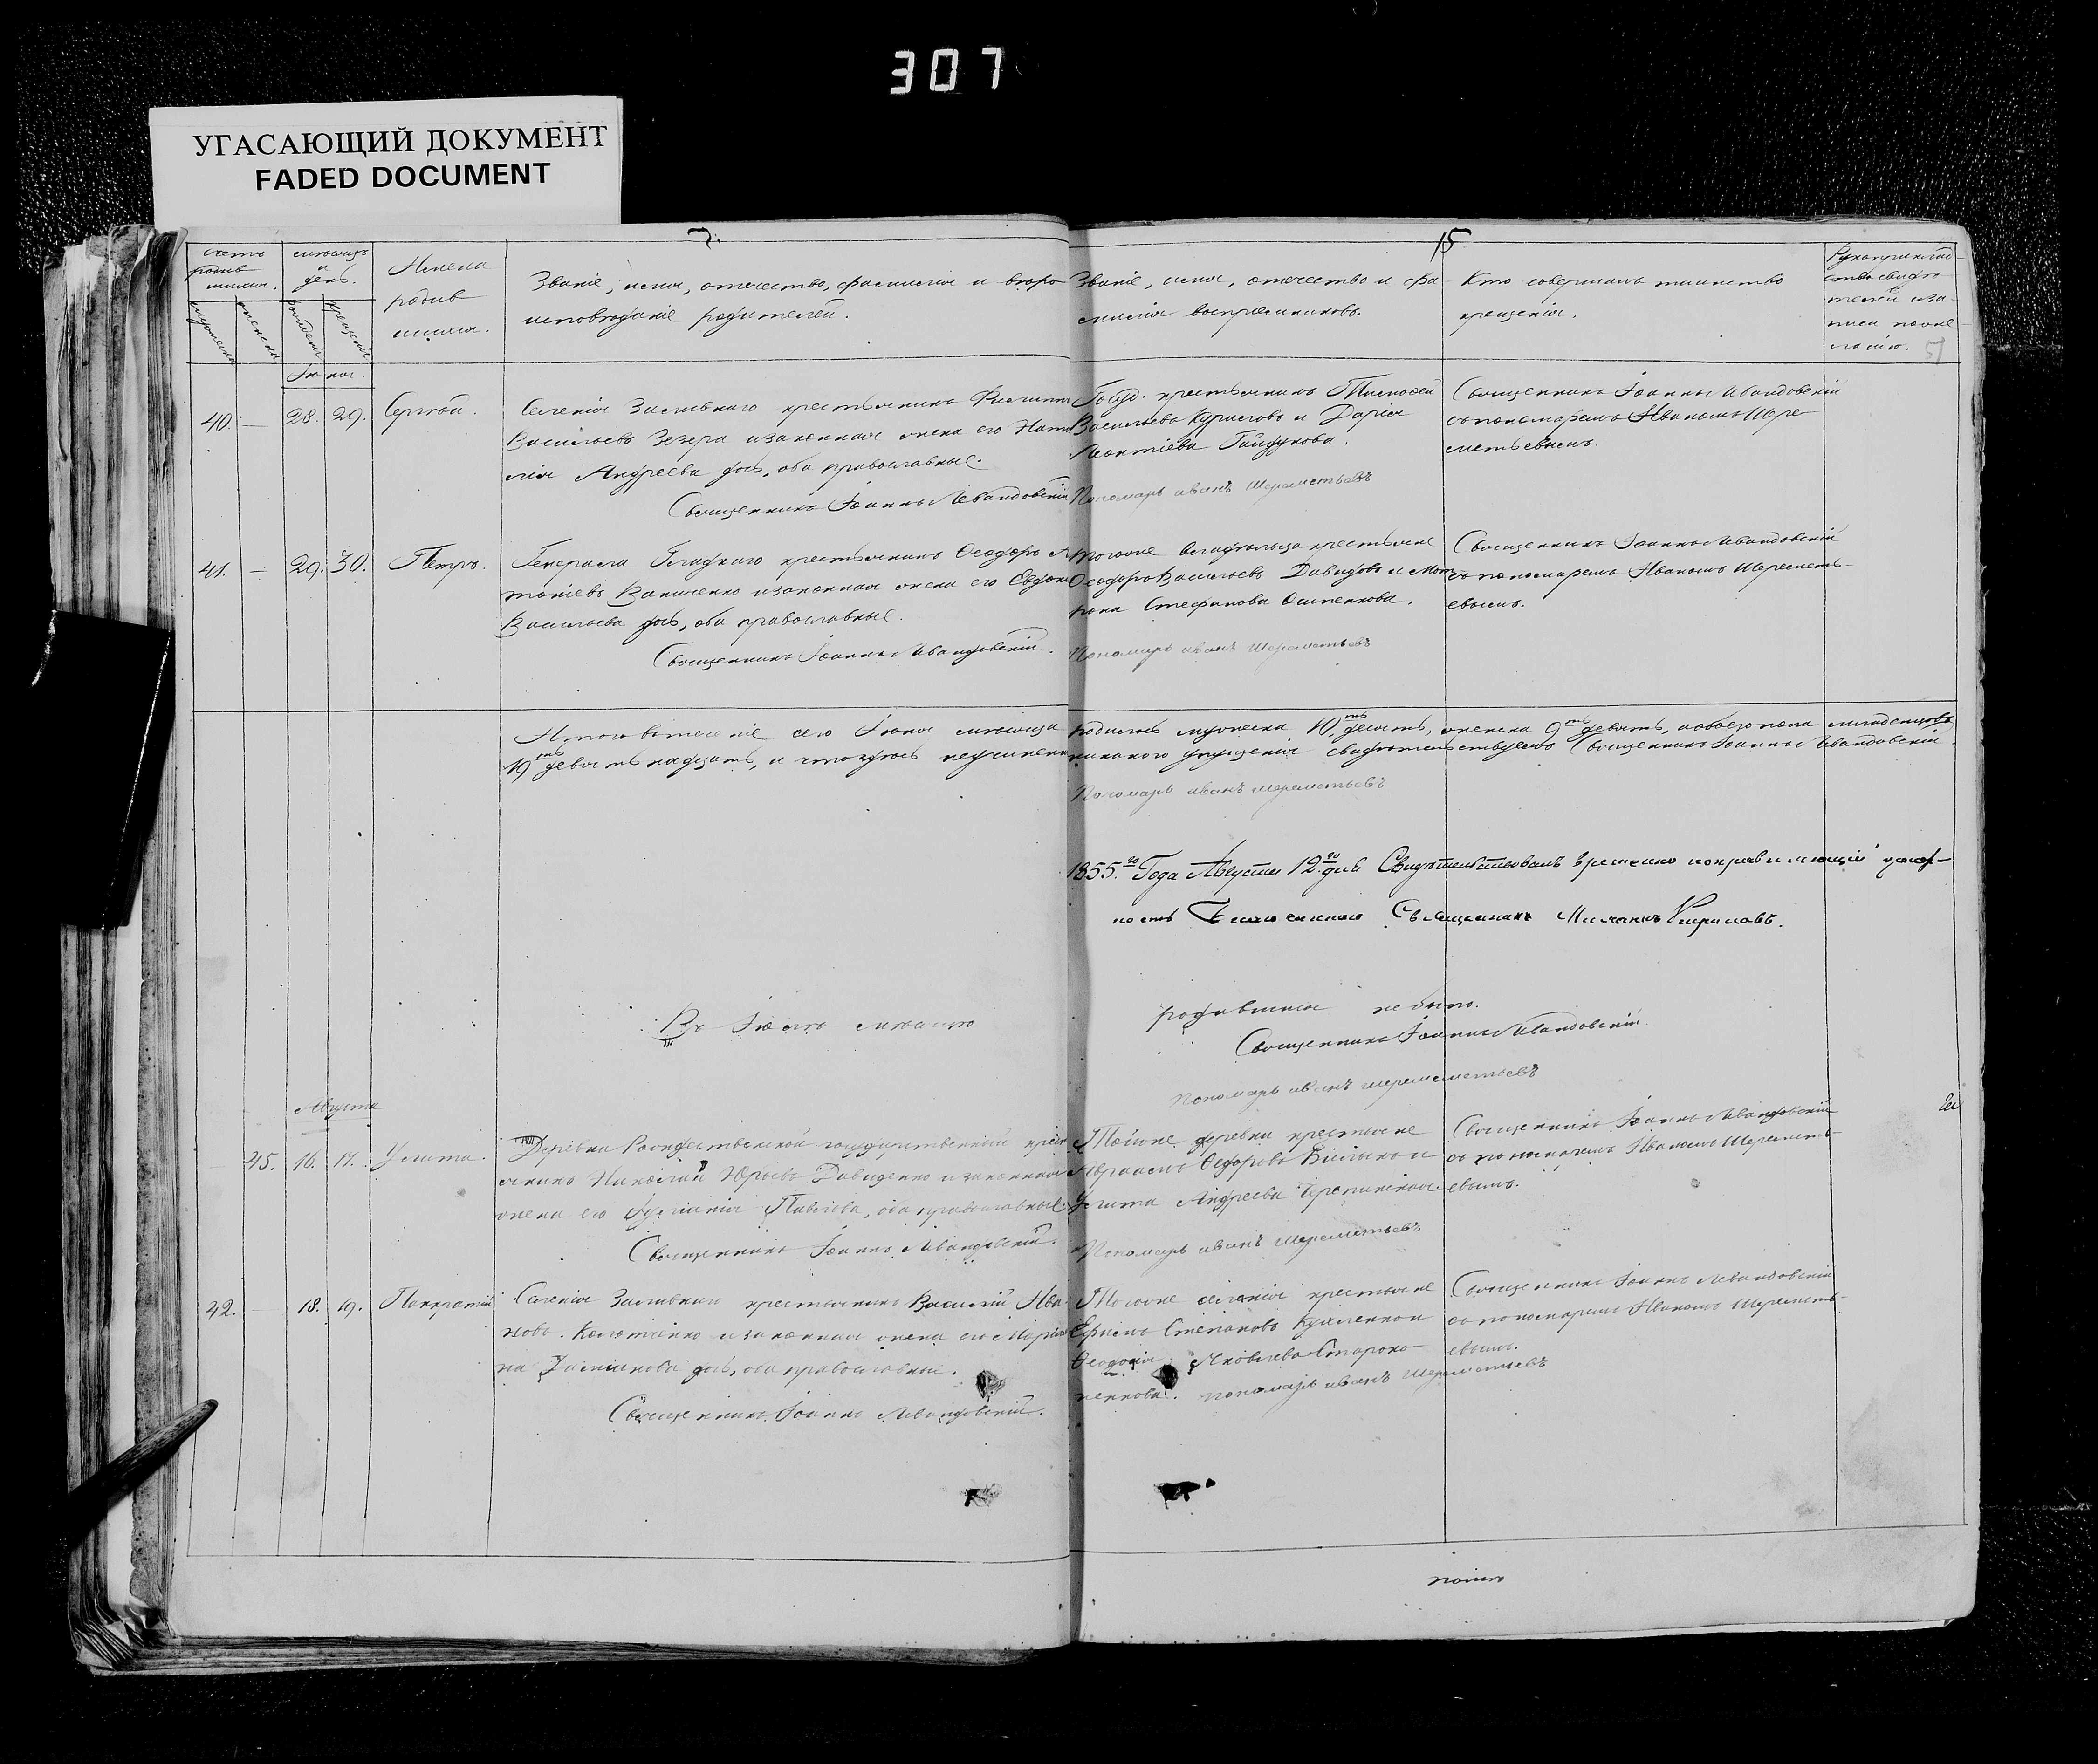 307
УГАСАЮЩИЙ ДОКУМЕНТ
FADED DOCUMENT
7.
15
51
мѣсяцъ
и
день.
Имена
родив
шихся.
Званіе, имя, отечество, фамилія и вѣро
исповѣданіе родителей.
Званіе, имя, отечество и фа
милія воспріемниковъ.
Кто совершалъ таинство
крещенія.
Рукоприклад-
ство свидѣ
телей
Іюня.
40. — 28. 29. Сергѣй.
Селенія Заливнаго крестьянинъ Филиппъ
Васильевъ Зезера и законная жена его Ната
лія Андреева дочь, оба православные.
Священникъ Іоаннъ Левандовскій
Госуд. крестьянинъ Тимофей
Васильевъ и Дарія
Леонтіева Гайдукова.
Пономарь иванъ шереметьевъ
Священникъ Іоаннъ Левандовскій
съ пономаремъ Иваномъ Шере
метьевымъ.
41. — 29. 30. Петръ.
Генерала Гладкаго крестьянинъ Феодоръ
Ваниченко и законная жена его Евдокія
Васильева дочь, оба православные.
Священникъ Іоаннъ Левандовскій.
тогоже владѣльца крестьяне
Феодоръ Васильевъ Давидовъ и Мат
рона Стефанова Осипенкова.
Пономарь иванъ шереметьевъ
Священникъ Іоаннъ Левандовскій
съ пономаремъ Иваномъ Шеремет-
евымъ.
Итого въ теченіе сего Іюня мѣсяца родилось мужеска 10ть десять, женска 9ть девять, а обоего пола младенцовъ
19ть девятьнадцать, и что здѣсь неучинено никакого упущенія свидѣтельствуемъ Священникъ Іоаннъ Левандовскій.
Пономарь иванъ шереметьевъ
1855го Года Августа 12го дня Свидѣтельствовалъ временно исправляющій долж-
ность Благочиннаго Священникъ Кириловъ.
Въ Іюлѣ мѣсяцѣ родившихся не было.
Священникъ Іоаннъ Левандовскій.
пономарь иванъ шереметьевъ
Августа
45. 16. 17. Улита.
Деревни Рождественской государственный крест
янинъ Николай Юрьевъ Давиденко и законная
жена его Іуліанія Павлова, оба православные.
Священникъ Іоаннъ Левандовскій.
Тойже деревни крестьяне
Авраамъ Федоровъ и
Улита Андреева
Пономарь иванъ шереметьевъ
Священникъ Іоаннъ Левандовскій
съ пономаремъ Иваномъ Шеремет-
евымъ.
42. — 18. 19. Панкратій
Селенія Заливнаго крестьянинъ Василій Ива
новъ и законная жена его Мари
на дочь, оба православные.
Священникъ Іоаннъ Левандовскій.
Тогоже селенія крестьяне
Ефимъ Степановъ и
Феодосія Яковлева Староко-
женкова. пономарь иванъ шереметьевъ
Священникъ Іоаннъ Левандовскій
съ пономаремъ Иваномъ Шеремет-
евымъ.